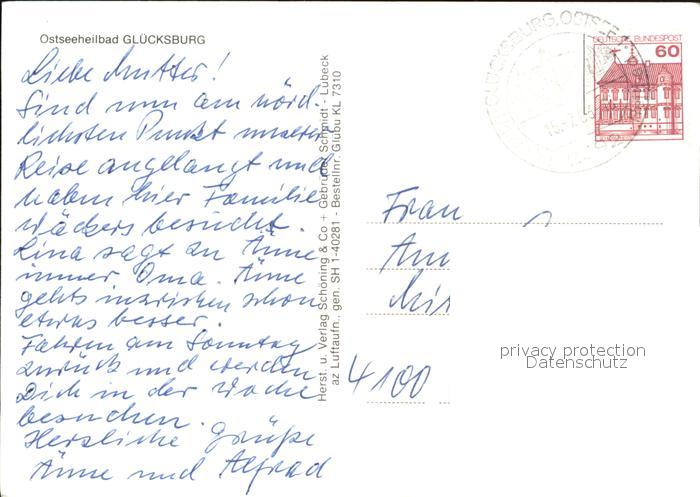 Ostseeheilbad GLÜCKSBURG
Liebe Mutter!
Sind nun am nörd-
lichsten Punkt unserer
Reise angelangt und
haben hier Familie
Wäckers besucht.
Lina sagt zu Änne
immer Oma. Änne
gehts inzwischen schon
etwas besser.
Fahren am Sonntag
zurück und werden
Dich in der Woche
besuchen.
Herzliche Grüße
Änne und Alfred
Herst. u. Verlag Schöning & Co + Gebrüder Schmidt - Lübeck
az Luftaufn., gen. SH 1-40281 - Bestellnr. Glubu KL 7310
GLÜCKSBURG, OSTSEE
DEUTSCHE BUNDESPOST
60
Frau
Ann
4100
privacy protection
Datenschutz